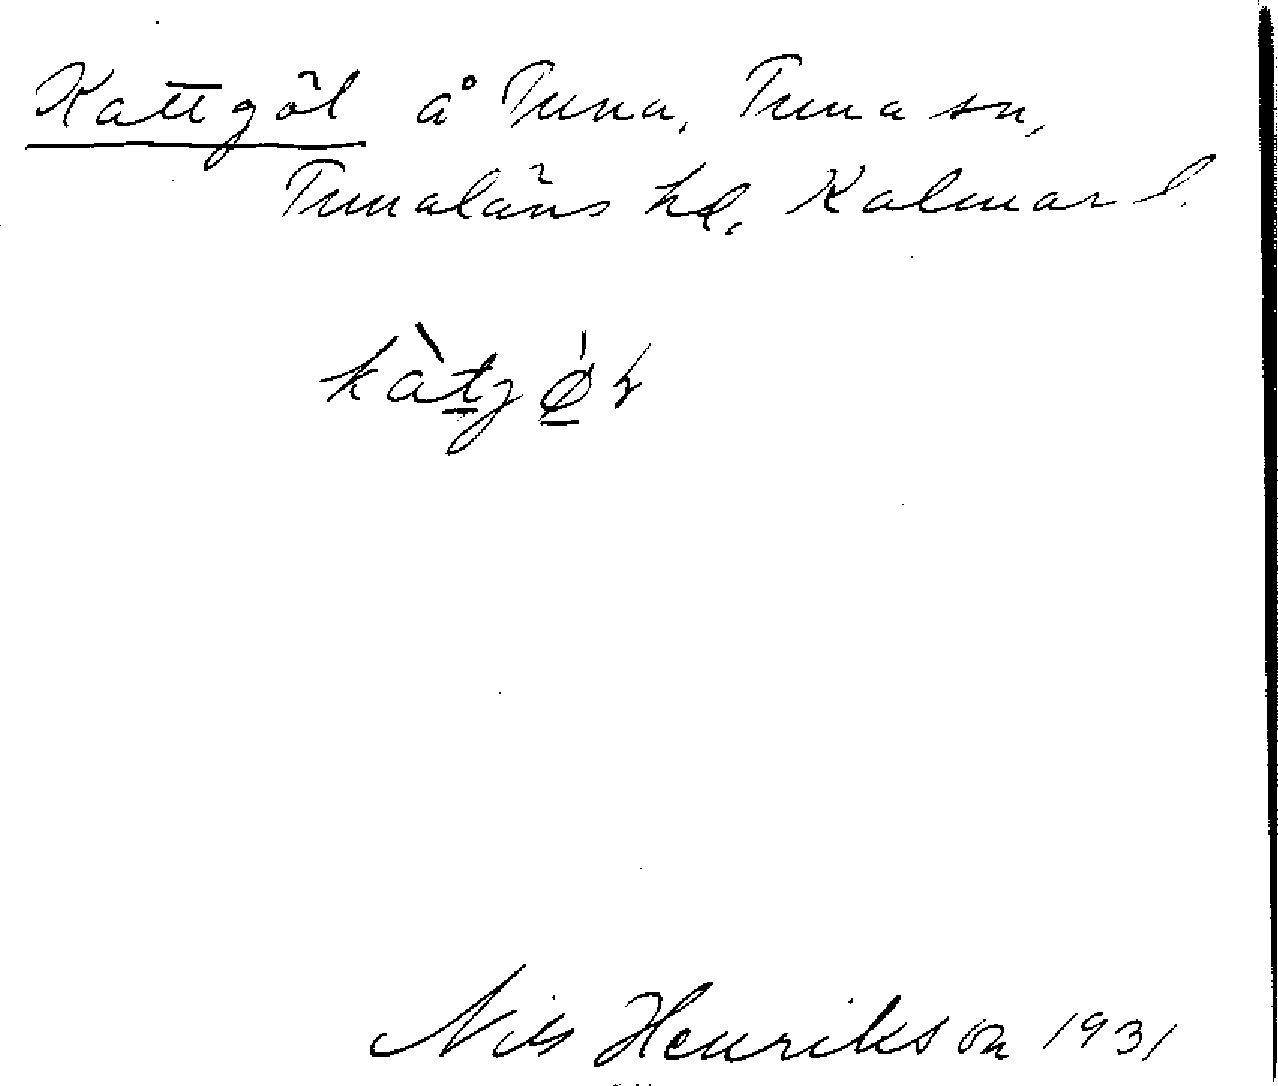 Kattgöl å Tuna, Tuna sn,
Tunaläns hd, Kalmar l.
Nils Henrikson 1931